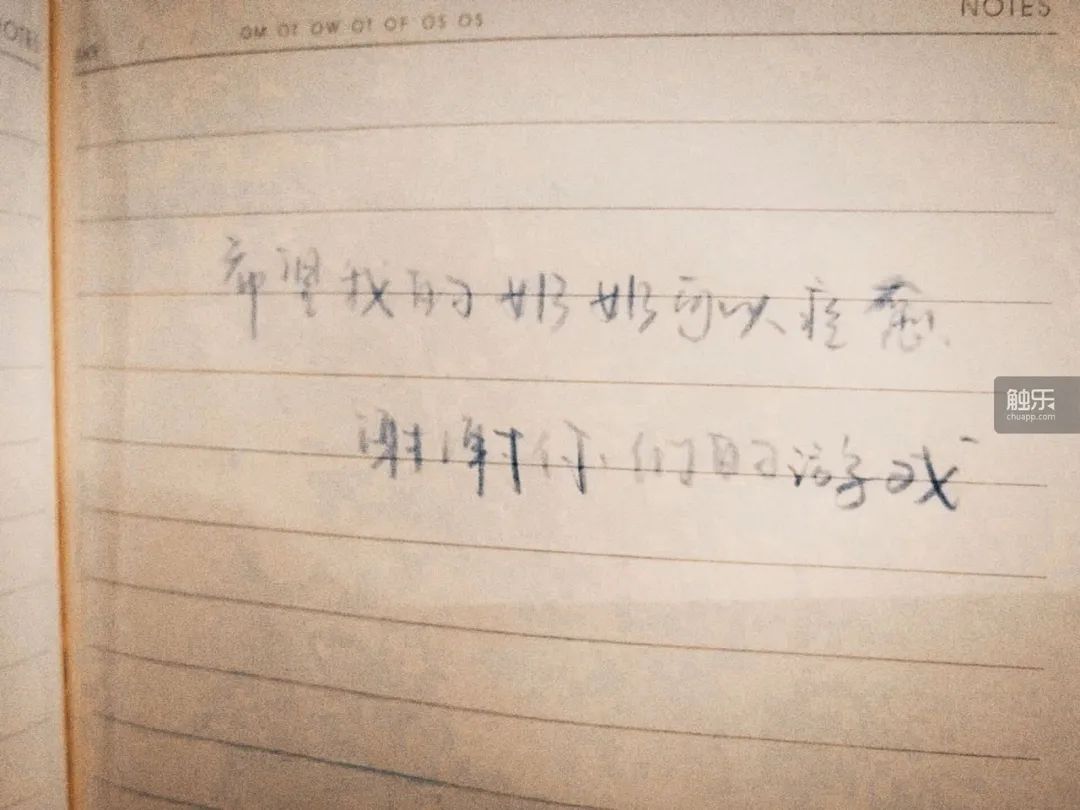 NOTES
OM OT OW OT OF OS OS
希望我的奶奶可以痊愈
谢谢你们的游戏
触乐
chuapp.com